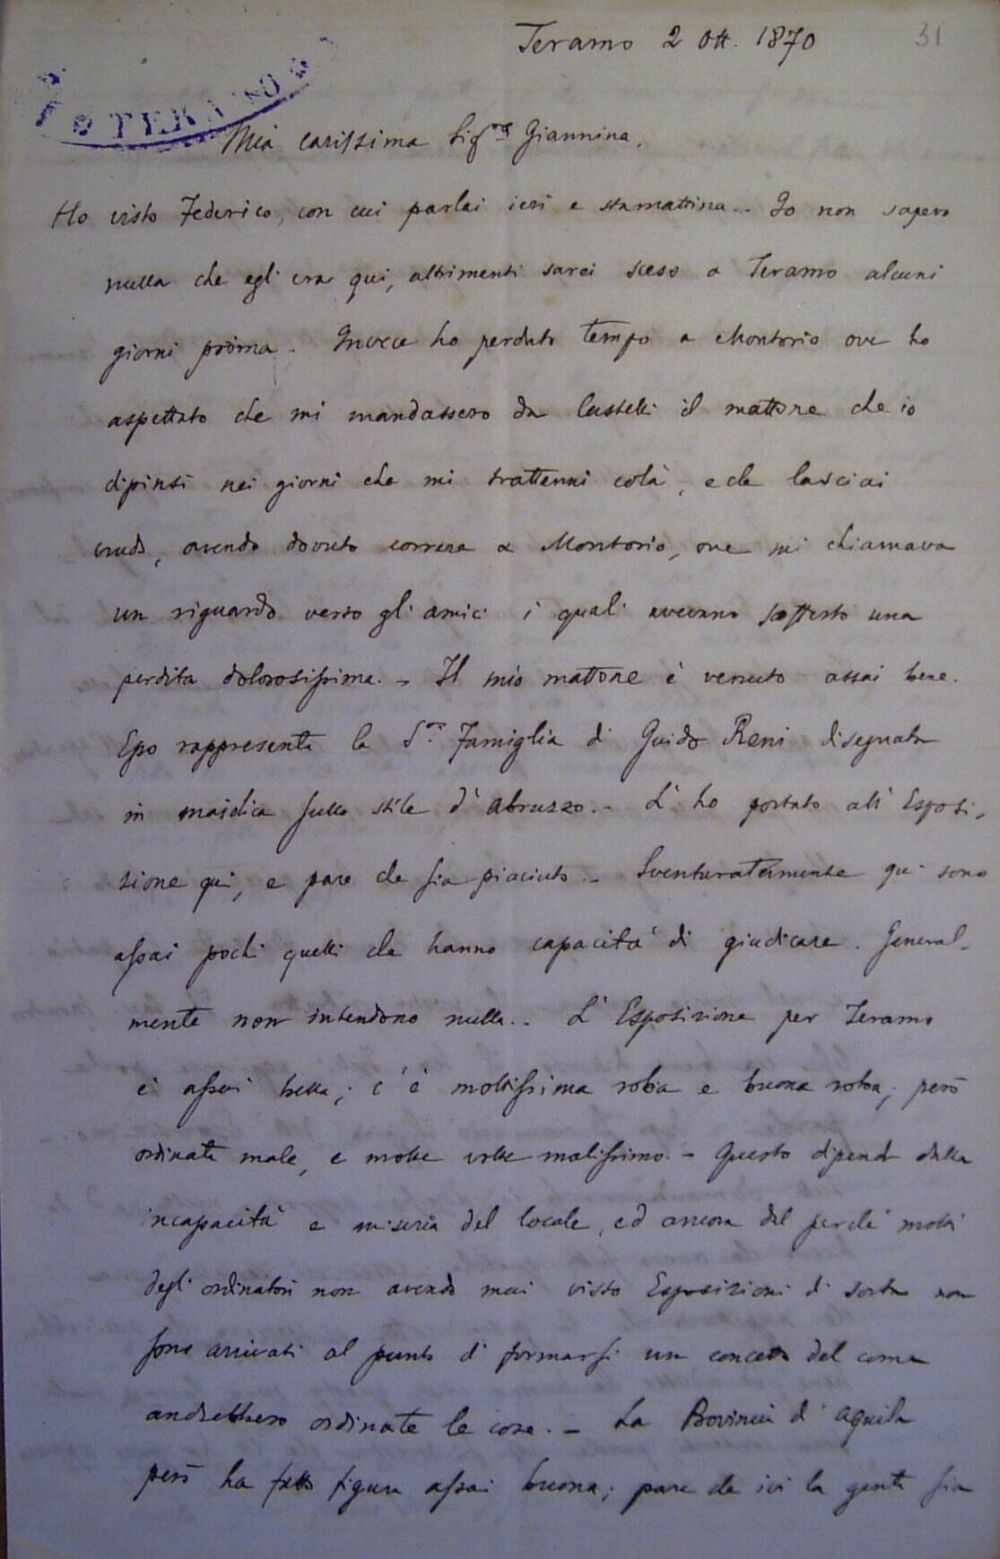 Teramo 2 Ott. 1870
31
TERAMO
Mia carissima Sigra Giannina,
Ho visto Federico, con cui parlai ieri e stamattina.. Io non sapevo
nulla che egli era qui, altrimenti sarei sceso a Teramo alcuni
giorni prima. Invece ho perduto tempo a Montorio ove ho
aspettato che mi mandassero da Castelli il mattone che io
dipinsi nei giorni che mi trattenni colà, e che lasciai
crudo, avendo dovuto correre a Montorio, ove mi chiamava
un riguardo verso gli amici i quali avevano sofferto una
perdita dolorosissima. - Il mio mattone è venuto assai bene.
Esso rappresenta la S.ra Famiglia di Guido Reni disegnata
in maiolica sullo stile d'Abruzzo. - L'ho portato all'Esposi-
zione qui, e pare che sia piaciuto. - Sventuratamente qui sono
assai pochi quelli che hanno capacità di giudicare. General-
mente non intendono nulla.. L'Esposizione per Teramo
è assai bella; c'è moltissima roba e buona roba; però
ordinata male, e molte volte malissimo. - Questo dipende dalla
incapacità e miseria del locale, ed ancora dal perché molti
degli ordinatori non avendo mai visto Esposizioni di sorta non
sono arrivati al punto di formarsi un concetto del come
andrebbero ordinate le cose. - La Provincia di Aquila
però ha fatto figura assai buona; pare che ivi la gente sia